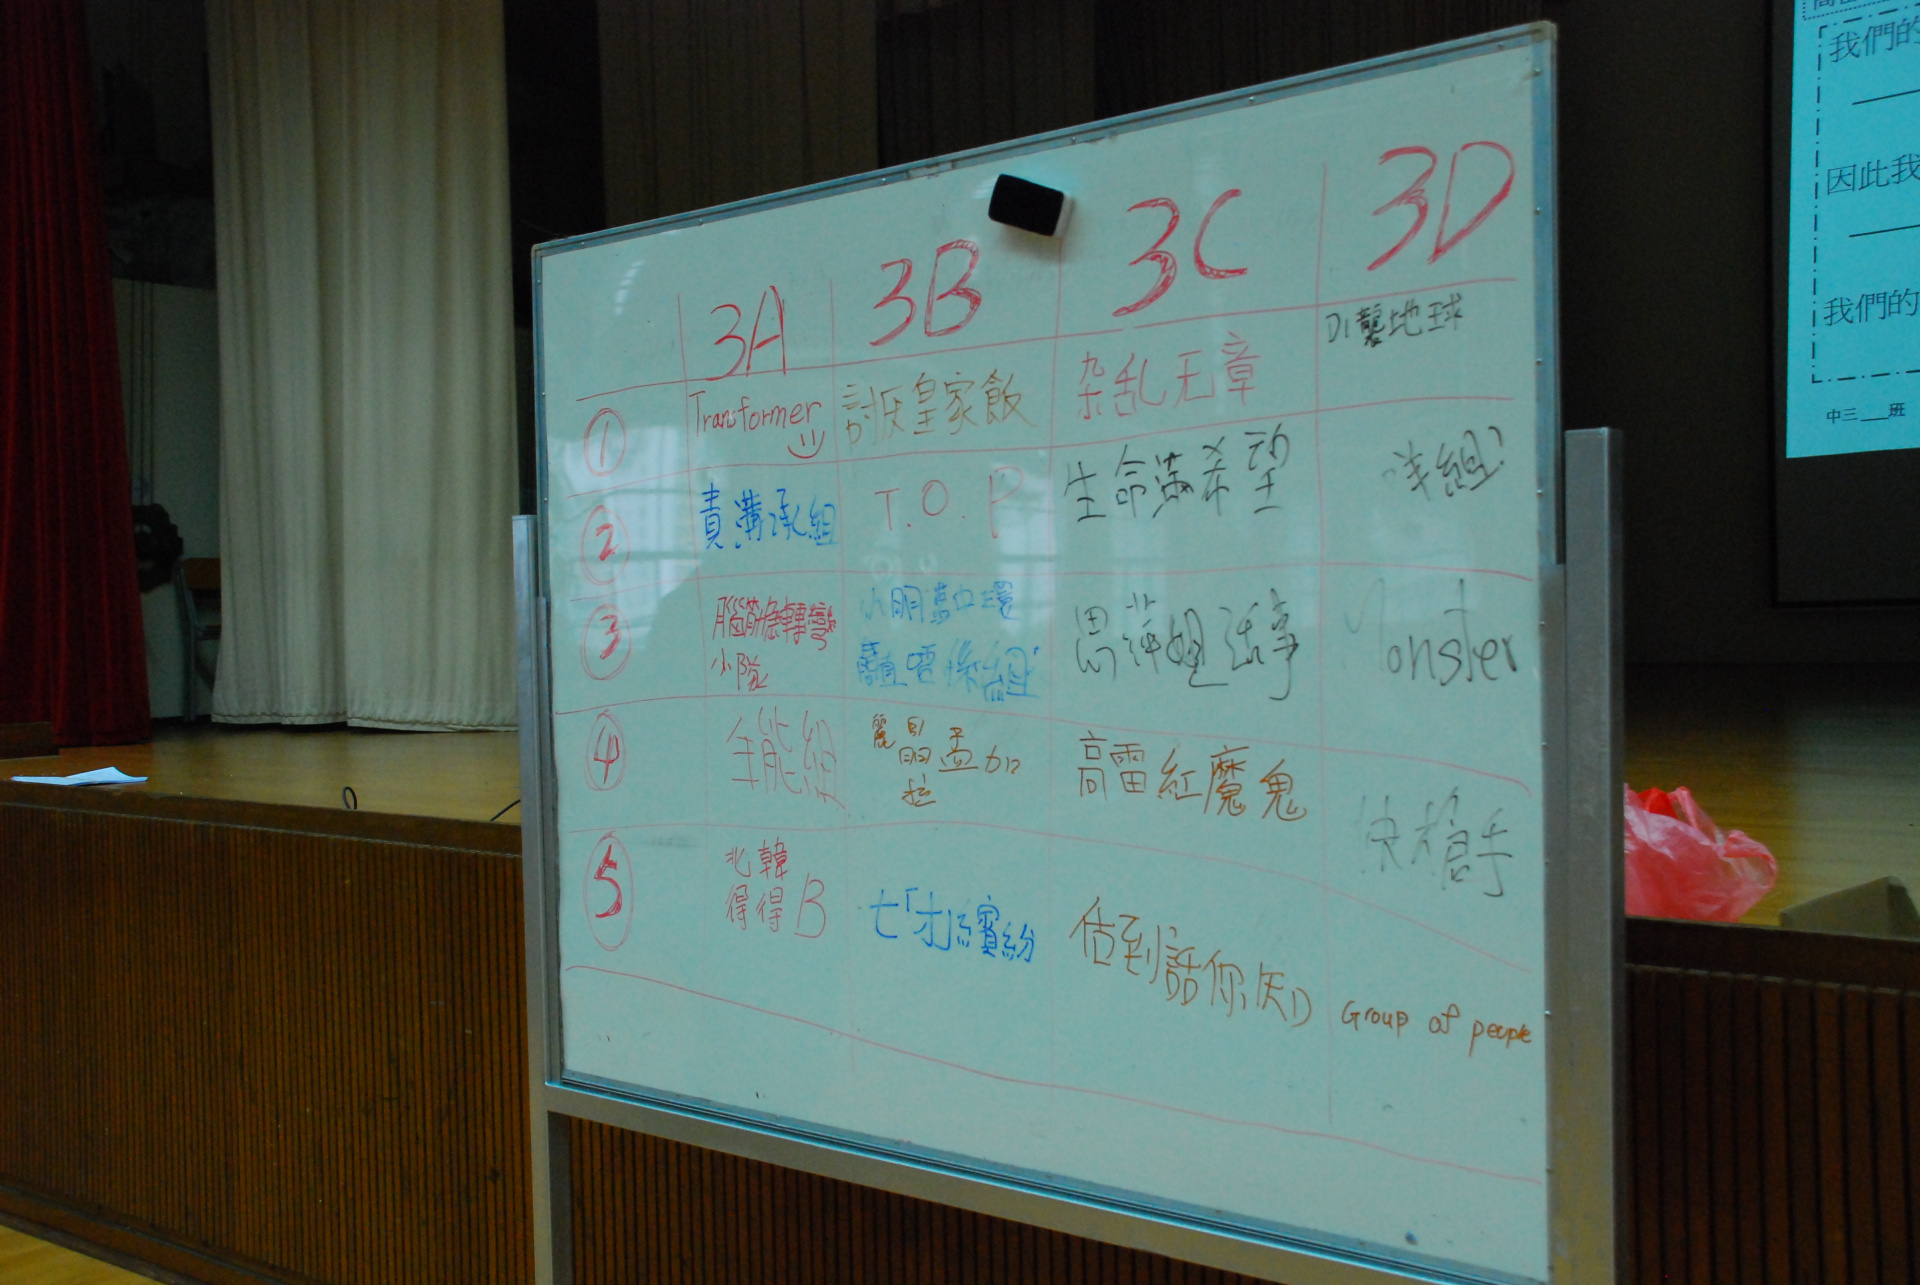 3A 3B 3C 3D
① Transformer 討厭皇家飯 杂乱无章 D1襲地球
② 責溝承組 T.O.P 生命滿希望 咦組
③ 腦筋急轉彎 小朋友 思萍姐話事 Monster
小隊
④ 全能組 麗晶孟加 高雷紅魔鬼 快槍手
拉
⑤ 北韓 七「才」繽紛 估到話你知 Group of people
得得B
我們的
因此我
我們的
中三___班